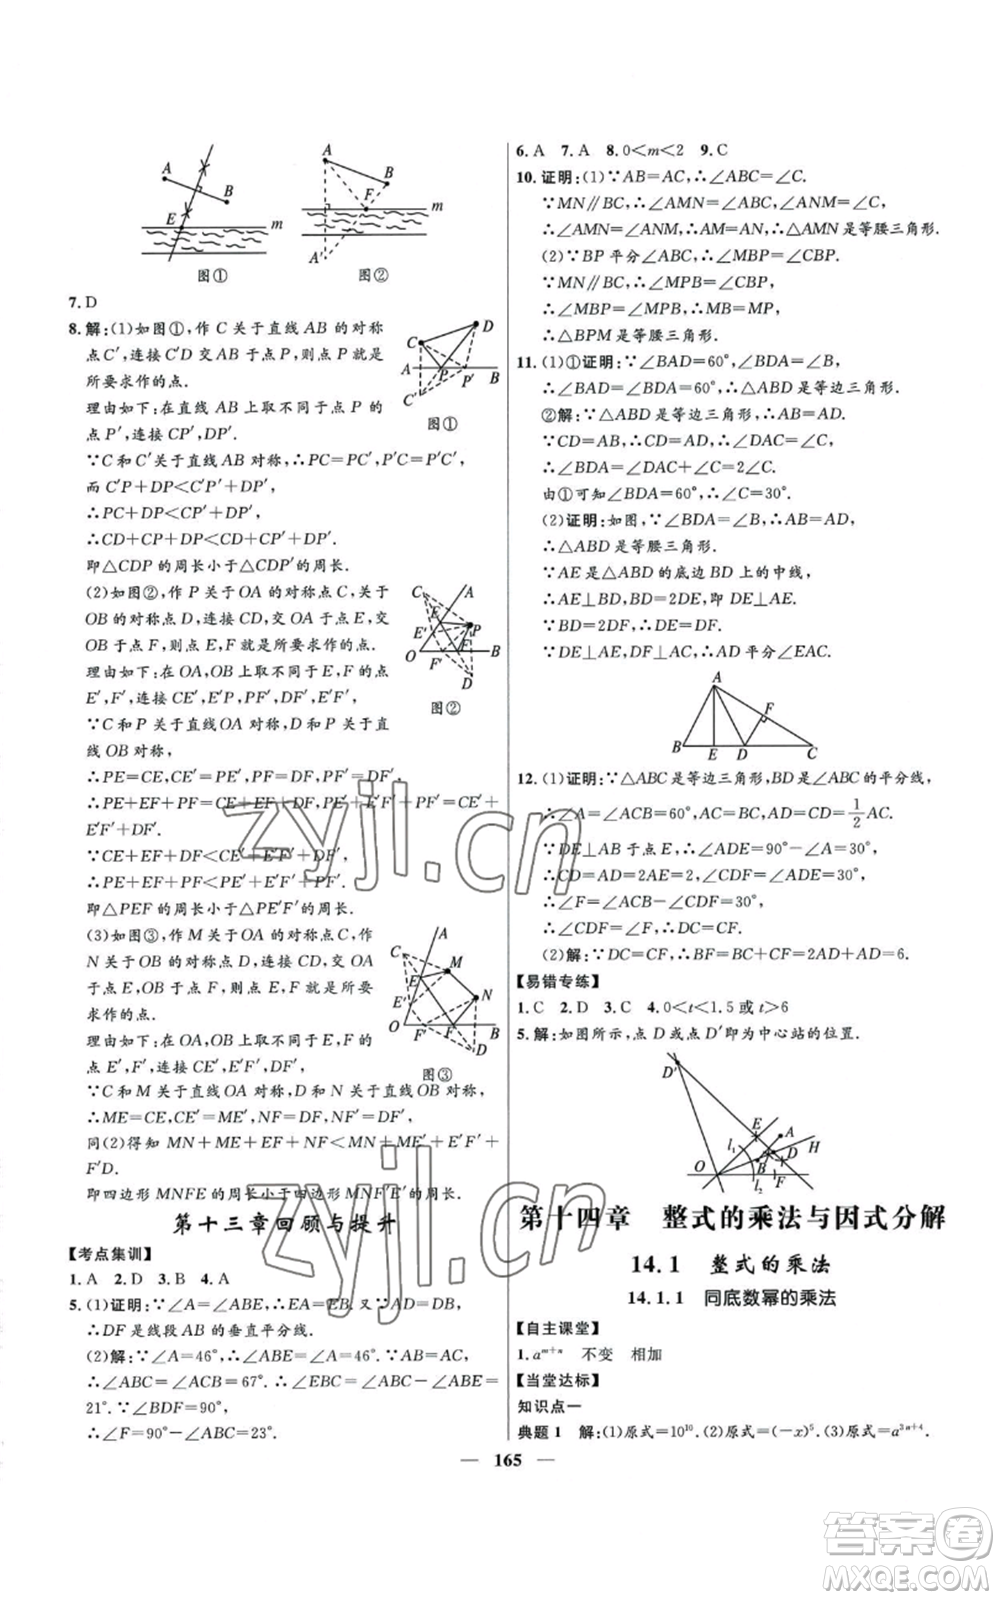 A
B
E
m
图①
A
B
F
m
A′
图②
7. D
8. 解:(1)如图①,作 C 关于直线 AB 的对称
点C′,连接C′D 交 AB 于点 P,则点 P 就是
所要求作的点.
理由如下:在直线 AB 上取不同于点 P 的
点 P′,连接 CP′,DP′.
C
D
A
P
P′
B
C′
图①
∵C 和 C′关于直线 AB 对称,∴PC=PC′,P′C=P′C′.
而 C′P+DP<C′P′+DP′,
∴PC+DP<CP′+DP′,
∴CD+CP+DP<CD+CP′+DP′.
即△CDP 的周长小于△CDP′的周长.
(2)如图②,作 P 关于 OA 的对称点 C,关于
OB 的对称点 D,连接 CD,交 OA 于点 E,交
OB 于点 F,则点 E,F 就是所要求作的点.
理由如下:在OA,OB 上取不同于 E,F 的点
E′,F′,连接 CE′,E′P,PF′,DF′,E′F′.
∵C 和 P 关于直线 OA 对称,D 和 P 关于直
线 OB 对称,
C
A
E
E′
P
O
F′
F
B
D
图②
∴PE=CE,CE′=PE′,PF=DF,PF′=DF′.
∴PE+EF+PF=CE+EF+DF,PE′+E′F′+PF′=CE′+
E′F′+DF′.
∵CE+EF+DF<CE′+E′F′+DF′,
∴PE+EF+PF<PE′+E′F′+PF′.
即△PEF 的周长小于△PE′F′的周长.
(3)如图③,作 M 关于 OA 的对称点 C,作
N 关于 OB 的对称点 D,连接 CD,交 OA 于
点 E,交 OB 于点 F,则点 E,F 就是所要求
作的点.
理由如下:在 OA,OB 上取不同于 E,F 的
点 E′,F′,连接 CE′,ME′,E′F′,NF′,DF′.
A
C
M
E
E′
N
O
F′
F
B
D
图③
∵C 和 M 关于直线 OA 对称,D 和 N 关于直线 OB 对称,
∴ME=CE,CE′=ME′,NF=DF,NF′=DF′.
同(2)得知 MN+ME+EF+NF<MN+ME′+E′F′+
F′D.
即四边形 MNFE 的周长小于四边形 MNF′E′的周长.
第十三章回顾与提升
【考点集训】
1. A 2. D 3. B 4. A
5. (1)证明:∵∠A=∠ABE,∴EA=EB. 又∵AD=DB,
∴DF 是线段 AB 的垂直平分线.
(2)解:∵∠A=46°,∴∠ABE=∠A=46°. ∵AB=AC,
∴∠ABC=∠ACB=67°. ∴∠EBC=∠ABC-∠ABE=
21°. ∵∠BDF=90°,
∴∠F=90°-∠ABC=23°.
6. A 7. A 8. 0<m<2 9. C
10. 证明:(1)∵AB=AC,∴∠ABC=∠C.
∵MN∥BC,∴∠AMN=∠ABC,∠ANM=∠C,
∴∠AMN=∠ANM,∴AM=AN,∴△AMN 是等腰三角形.
(2)∵BP 平分∠ABC,∴∠MBP=∠CBP.
∵MN∥BC,∴∠MPB=∠CBP.
∴∠MBP=∠MPB,∴MB=MP,
∴△BPM 是等腰三角形.
11. (1)①证明:∵∠BAD=60°,∠BDA=∠B,
∴∠BAD=∠BDA=60°,∴△ABD 是等边三角形.
②解:∵△ABD 是等边三角形,∴AB=AD.
∵CD=AB,∴CD=AD,∴∠DAC=∠C,
∴∠BDA=∠DAC+∠C=2∠C.
由①可知∠BDA=60°,∴∠C=30°.
(2)证明:如图,∵∠BDA=∠B,∴AB=AD,
∴△ABD 是等腰三角形.
∵AE 是△ABD 的底边 BD 上的中线,
∴AE⊥BD,∴BD=2DE.
∵BD=2DF,∴DE=DF.
∵DE⊥AE,DF⊥AC,∴AD 平分∠EAC.
A
F
B
E
D
C
12. (1)证明:∵△ABC 是等边三角形,BD 是∠ABC 的平分线,
∴∠A=∠ACB=60°,AC=BC,AD=CD=1/2AC.
∵DE⊥AB 于点 E,∴∠ADE=90°-∠A=30°,
∴CD=AD=2AE=2,∠CDF=∠ADE=30°.
∴∠F=∠ACB-∠CDF=30°.
∴∠CDF=∠F,∴DC=CF.
(2)解:∵DC=CF,∴BF=BC+CF=2AD+AD=6.
【易错专练】
1. C 2. D 3. C 4. 0<t<1.5 或 t>6
5. 解:如图所示,点 D 或点 D′即为中心站的位置.
D′
E
A
H
l₁
B
D
O
l₂
F
第十四章 整式的乘法与因式分解
14.1 整式的乘法
14.1.1 同底数幂的乘法
【自主课堂】
1. aᵐ⁺ⁿ 不变 相加
【当堂达标】
知识点一
典题 1 解:(1)原式=10¹⁰. (2)原式=(-x)⁵. (3)原式=a³ⁿ⁺⁴.
— 165 —
zyjl.cn
zyjl.cn
答案圈
MXQE.COM